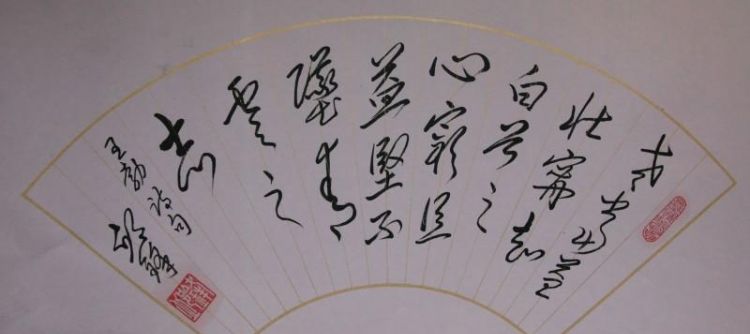 老當益
壯甯知
白首之
心窮且
益堅不
墜青
雲之
志
王勃詩句